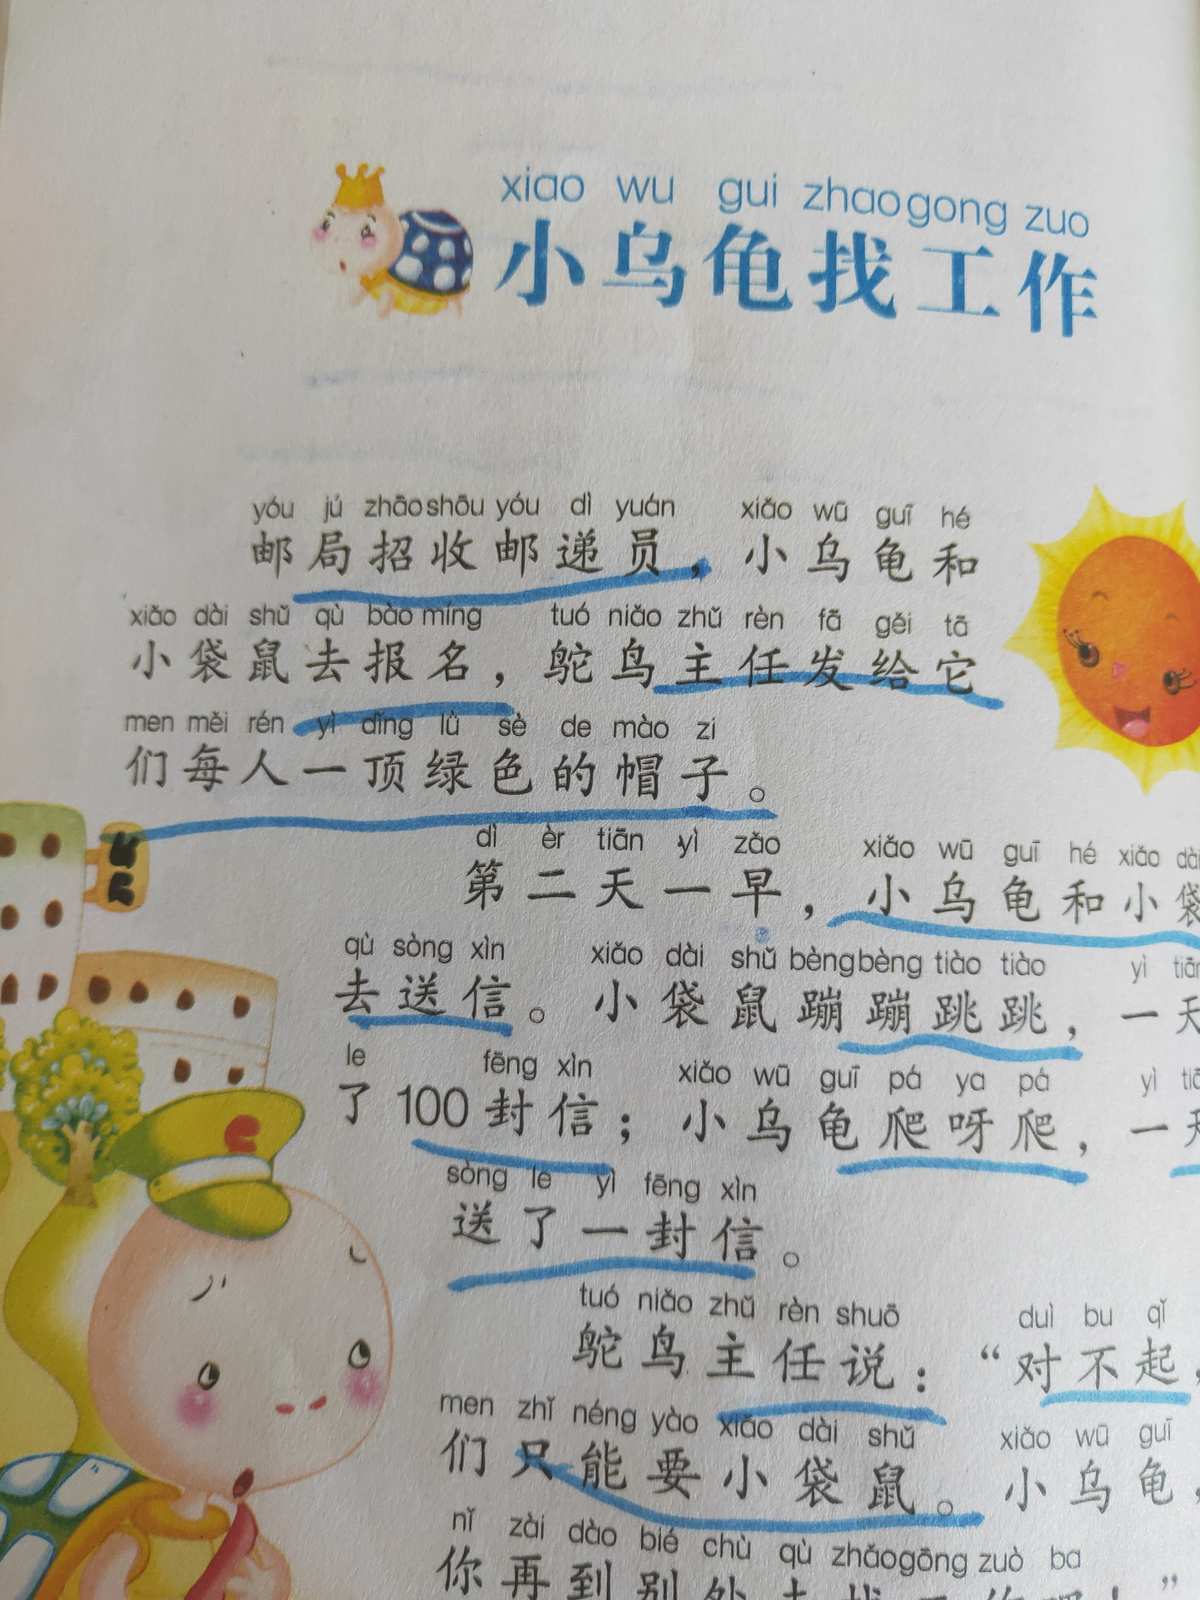 xiao wu gui zhao gong zuo
小乌龟找工作
yóu jú zhāo shōu yóu dì yuán xiǎo wū guī hé
邮局招收邮递员，小乌龟和
xiǎo dài shǔ qù bào míng tuó niǎo zhǔ rèn fā gěi tā
小袋鼠去报名，鸵鸟主任发给它
men měi rén yì dǐng lǜ sè de mào zi
们每人一顶绿色的帽子。
dì èr tiān yì zǎo xiǎo wū guī hé xiǎo dài
第二天一早，小乌龟和小袋
qù sòng xìn xiǎo dài shǔ bèng bèng tiào tiào yì tiān
去送信。小袋鼠蹦蹦跳跳，一天
le fēng xìn xiǎo wū guī pá ya pá yì tiān
了100封信；小乌龟爬呀爬，一天
sòng le yì fēng xìn
送了一封信。
tuó niǎo zhǔ rèn shuō duì bu qǐ
鸵鸟主任说：“对不起，
men zhǐ néng yào xiǎo dài shǔ xiǎo wū guī
们只能要小袋鼠。小乌龟，
nǐ zài dào bié chù qù zhǎo gōng zuò ba
你再到别处去找工作吧！”